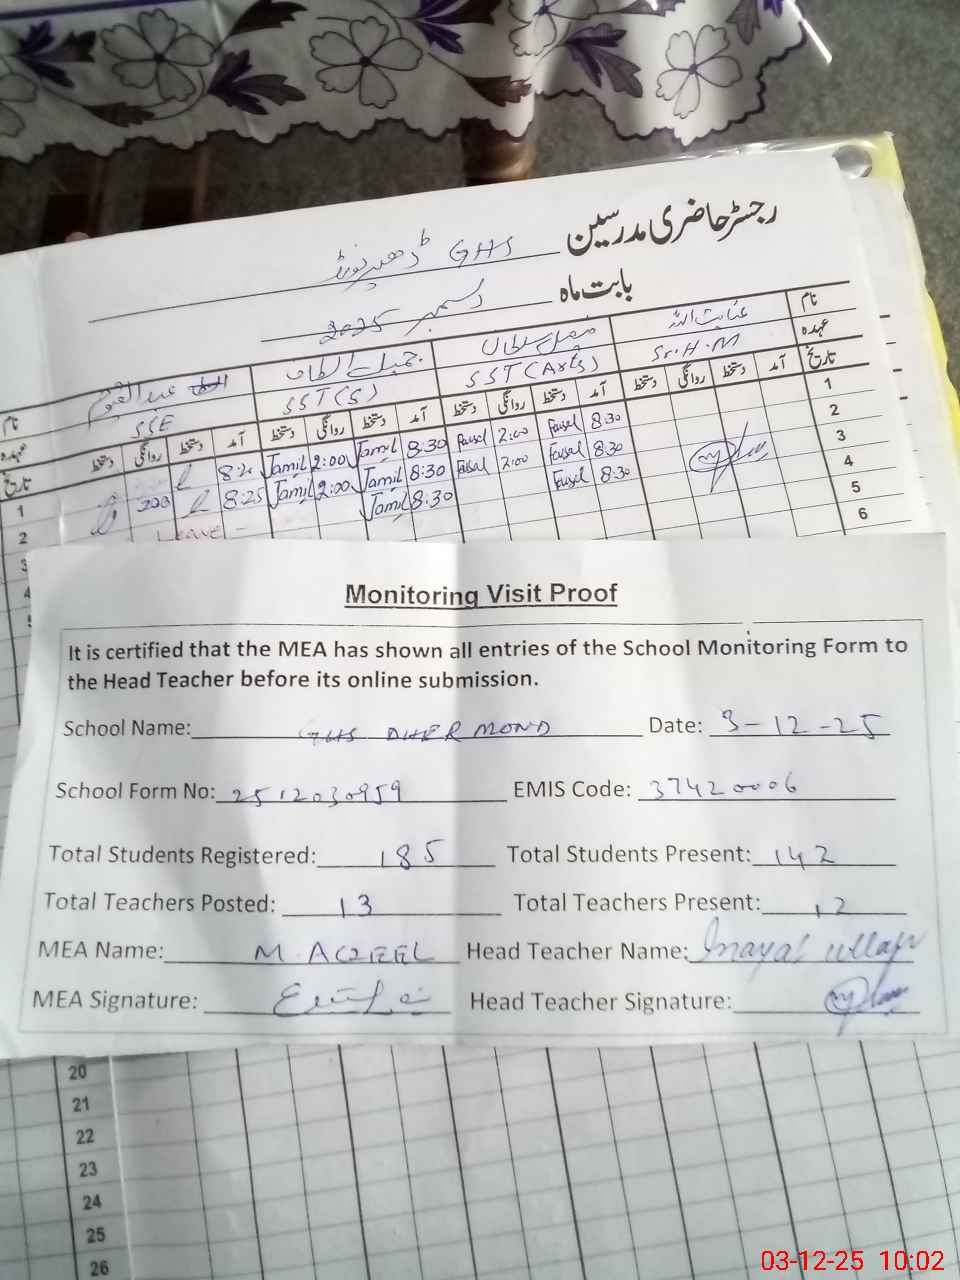 رجسٹر حاضری مدرسین GHS ڈھیر مونڈ
بابت ماہ دسمبر 2025
نام عنایت اللہ فیصل سلطان جمیل الطاف عبدالقیوم نام
عہدہ Sr.H.M SST (Arts) SST (S) SSE عہدہ
تاریخ آمد دستخط روانگی دستخط آمد دستخط روانگی دستخط آمد دستخط روانگی دستخط آمد دستخط روانگی دستخط تاریخ
1 8:30 Faisal 2:00 Faisal 8:30 Jamil 2:00 Jamil 1
2 8:30 Faisal 2:00 Faisal 8:30 Jamil 2:00 Jamil 8:25 2
3 8:30 Faisal 8:30 Jamil Leave 3
4
5
6
Monitoring Visit Proof
It is certified that the MEA has shown all entries of the School Monitoring Form to
the Head Teacher before its online submission.
School Name: GHS DHER MOND Date: 3-12-25
School Form No: 2512030959 EMIS Code: 37420006
Total Students Registered: 185 Total Students Present: 142
Total Teachers Posted: 13 Total Teachers Present: 12
MEA Name: M. AQEEL Head Teacher Name: Inayat ullah
MEA Signature: Head Teacher Signature:
20
21
22
23
24
25
26
03-12-25 10:02